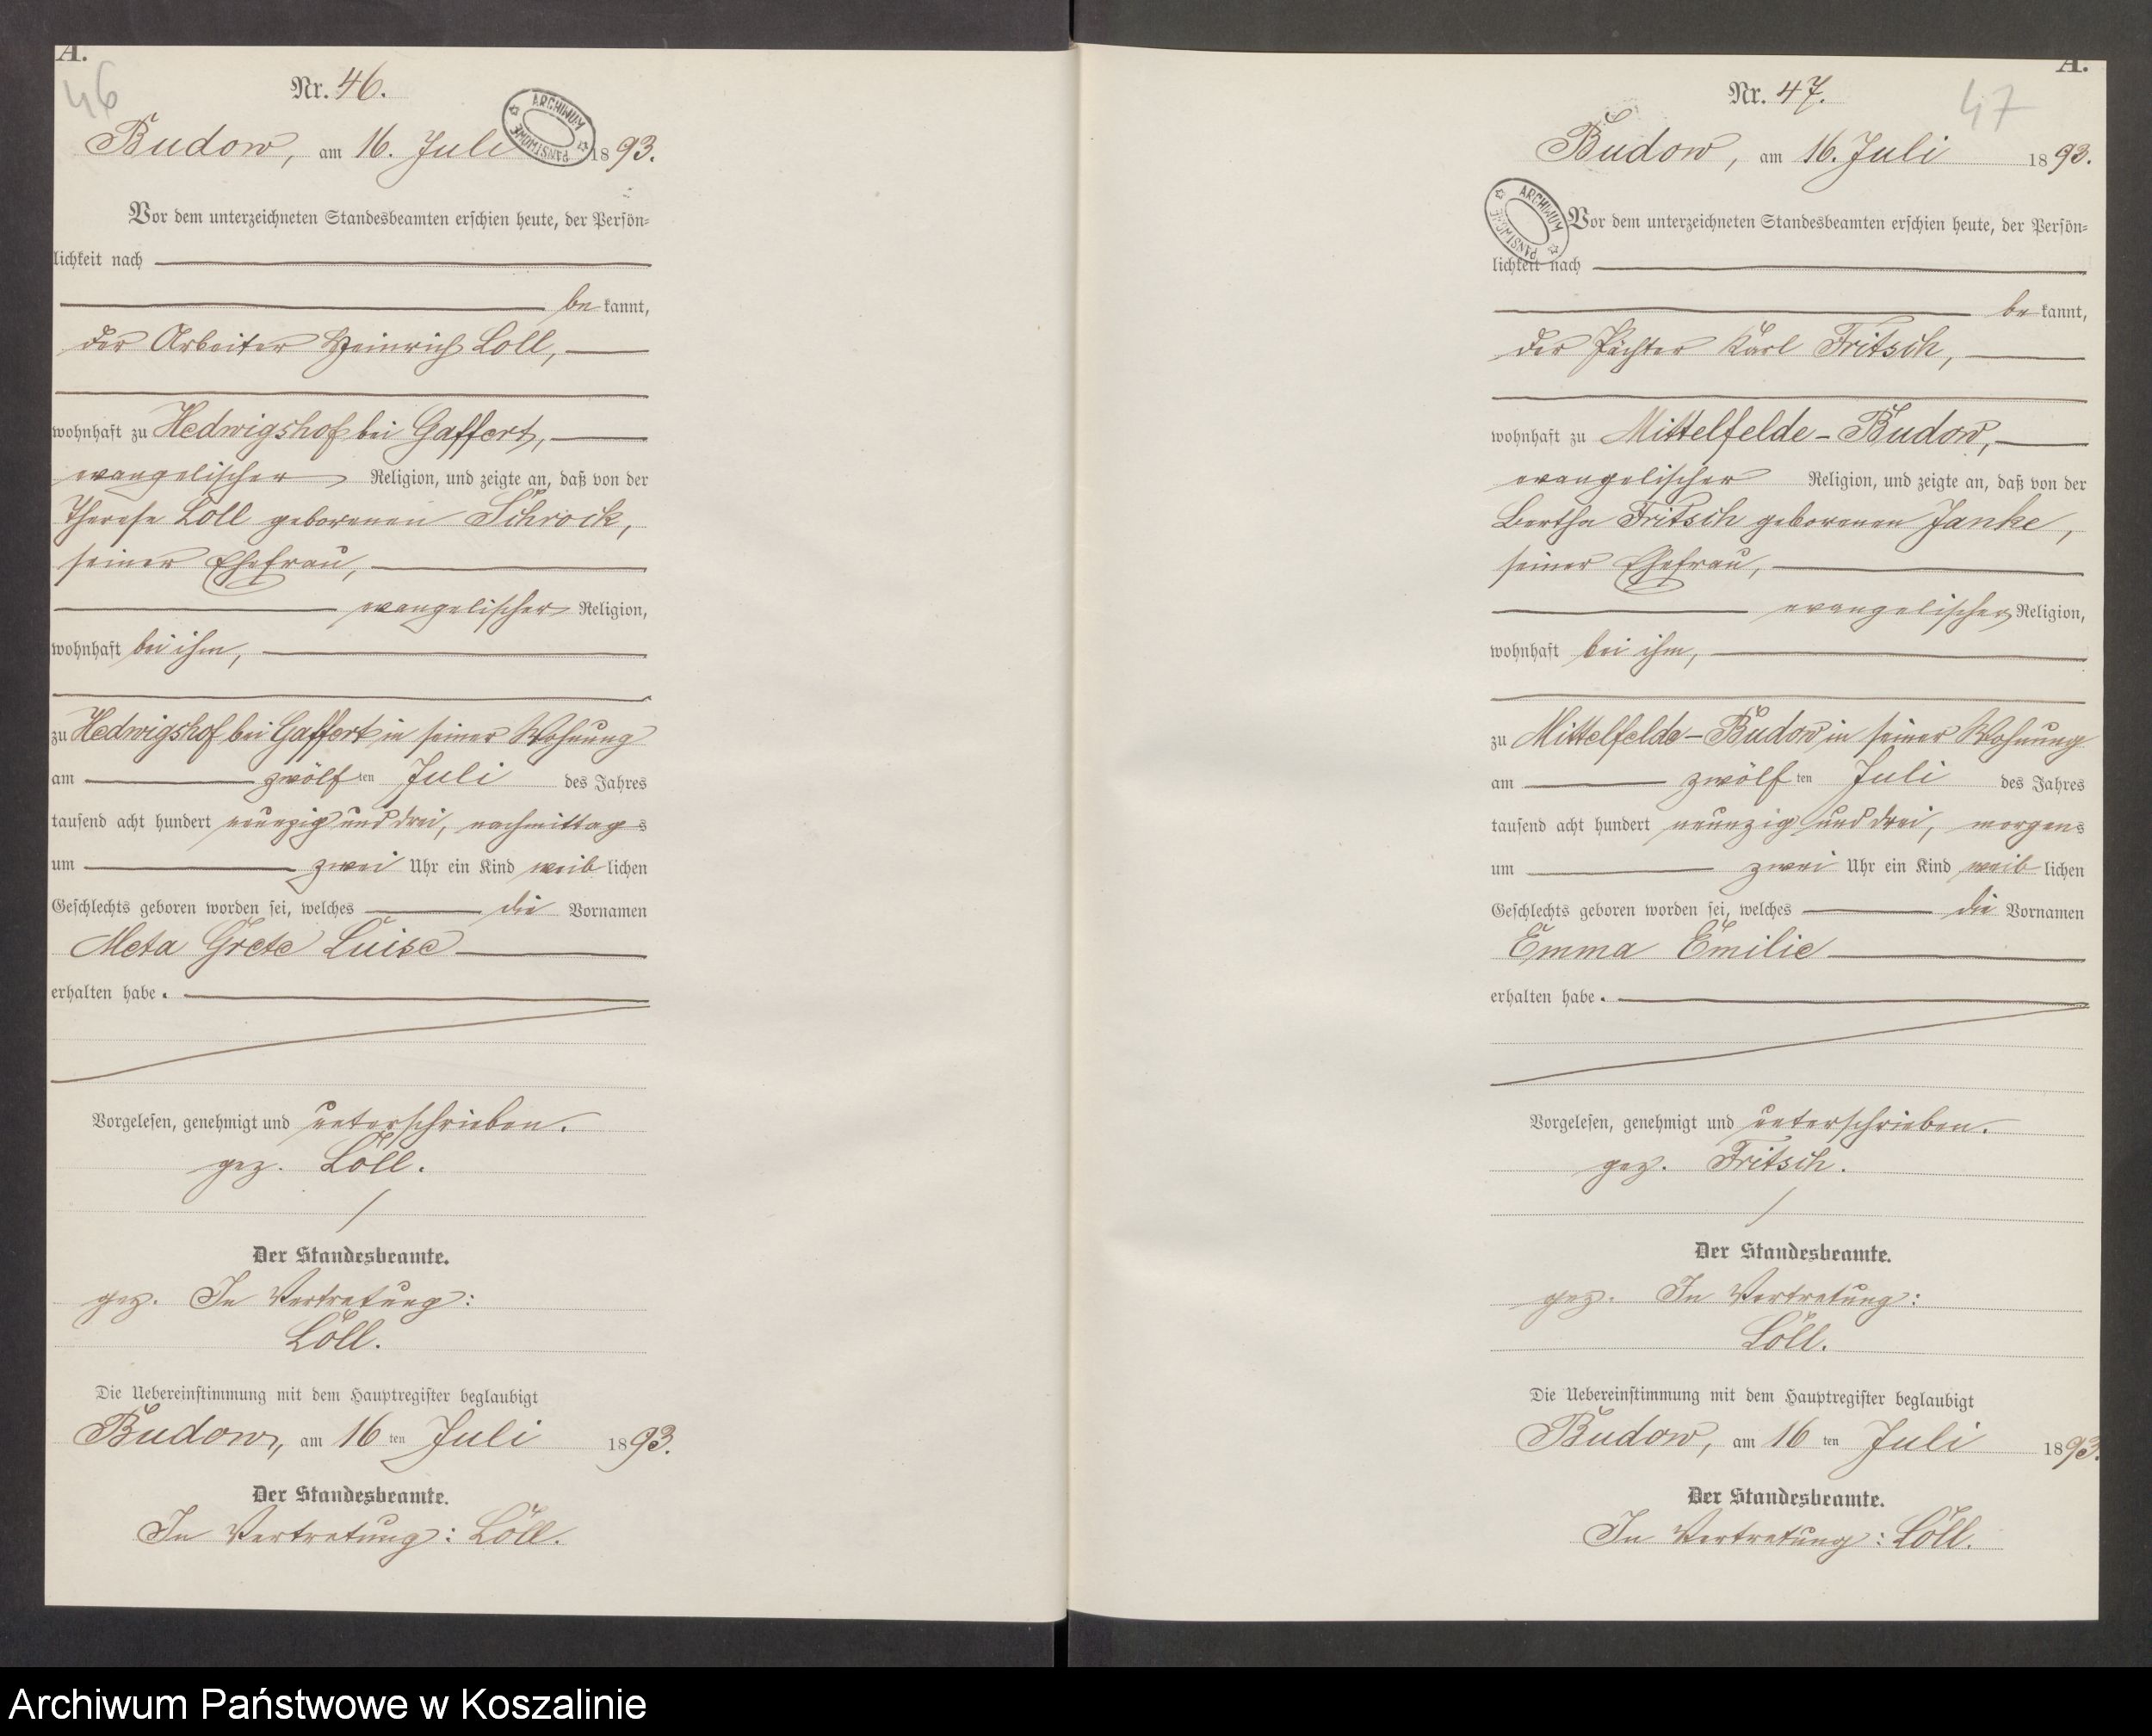 A.
46
Nr. 46.
ARCHIWUM PAŃSTWOWE
Budow, am 16. Juli 1893.
Vor dem unterzeichneten Standesbeamten erschien heute, der Persön-
lichkeit nach
bekannt,
der Arbeiter Heinrich Loll,
wohnhaft zu Hedwigshof bei Gaffert,
evangelischer Religion, und zeigte an, daß von der
Therese Loll geborenen Schrock,
seiner Ehefrau,
evangelischer Religion,
wohnhaft bei ihm,
zu Hedwigshof bei Gaffert in seiner Wohnung
am zwölften Juli des Jahres
tausend acht hundert neunzig und drei, nachmittags
um zwei Uhr ein Kind weiblichen
Geschlechts geboren worden sei, welches die Vornamen
Meta Grete Luise
erhalten habe.
Vorgelesen, genehmigt und unterschrieben.
gez. Löll.
Der Standesbeamte.
gez. In Vertretung:
Löll.
Die Uebereinstimmung mit dem Hauptregister beglaubigt
Budow, am 16ten Juli 1893.
Der Standesbeamte.
In Vertretung: Löll.
A.
47
Nr. 47.
Budow, am 16. Juli 1893.
ARCHIWUM PAŃSTWOWE
Vor dem unterzeichneten Standesbeamten erschien heute, der Persön-
lichkeit nach
bekannt,
der Pächter Karl Fritsch,
wohnhaft zu Mittelfelde-Budow,
evangelischer Religion, und zeigte an, daß von der
Bertha Fritsch geborenen Janke,
seiner Ehefrau,
evangelischer Religion,
wohnhaft bei ihm,
zu Mittelfelde-Budow in seiner Wohnung
am zwölften Juli des Jahres
tausend acht hundert neunzig und drei, morgens
um zwei Uhr ein Kind weiblichen
Geschlechts geboren worden sei, welches die Vornamen
Emma Emilie
erhalten habe.
Vorgelesen, genehmigt und unterschrieben.
gez. Fritsch.
Der Standesbeamte.
gez. In Vertretung:
Löll.
Die Uebereinstimmung mit dem Hauptregister beglaubigt
Budow, am 16ten Juli 1893.
Der Standesbeamte.
In Vertretung: Löll.
Archiwum Państwowe w Koszalinie